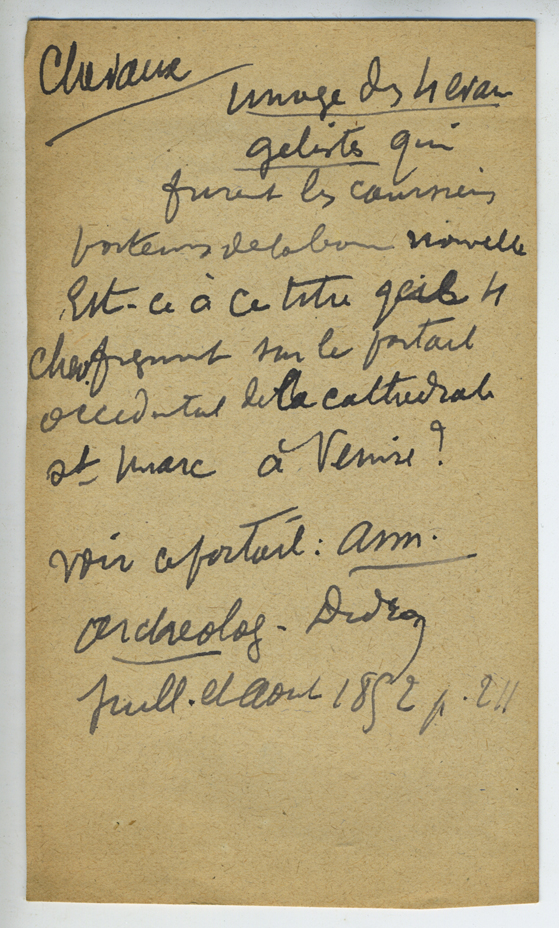 Chevaux
image des 4 évan
gelistes qui
furent les coursiers
porteurs de la bonne nouvelle
Est-ce à ce titre que les 4
chev. figurent sur le portail
occidental de la cathedrale
st Marc à Venise ?
voir ce portail : Ann.
archeolog - Didron
Juill. et Aout 1852 p.